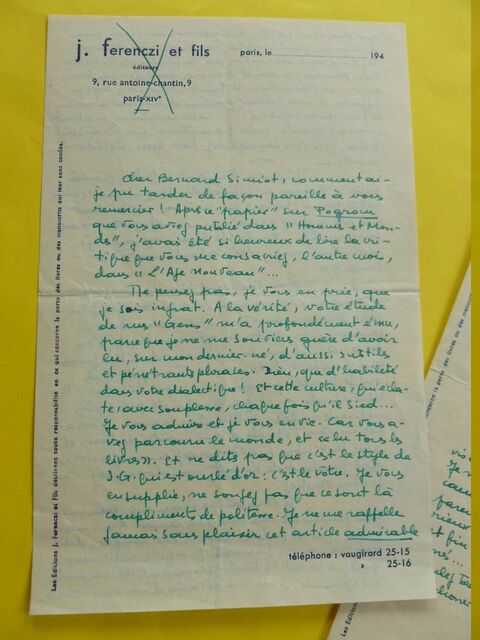 j. ferenczi et fils
éditeurs
9, rue antoine-chantin, 9
paris-XIVe
paris, le 194
Cher Bernard Simiot, comment ai-
je pu tarder de façon pareille à vous
remercier ! Après le "papier" sur Pogrom
que vous aviez publié dans "Hommes et Mon-
des", j'avais été si heureux de lire la cri-
tique que vous me consacriez, l'autre mois,
dans "L'Age Nouveau"...
Ne pensez pas, je vous en prie, que
je sois ingrat. A la vérité, votre étude
de mes "Gens" m'a profondément ému,
parce que je ne me souviens guère d'avoir
lu, sur mon dernier-né, d'aussi subtiles
et pénétrantes phrases. Dieu, que d'habileté
dans votre dialectique ! Et cette culture, qui écla-
te, avec souplesse, chaque fois qu'il sied...
Je vous admire et je vous envie. Car vous a-
vez parcouru le monde, et "lu tous les
livres". Et ne dites pas que c'est le style de
J.G. qui est ourlé d'or : c'est le vôtre. Je vous
en supplie, ne songez pas que ce sont là
compliments de politesse. Je ne me rappelle
jamais sans plaisir cet article admirable
téléphone : vaugirard 25-15
» 25-16
Les Editions J. Ferenczi et Fils déclinent toute responsabilité en ce qui concerne la perte des livres ou des manuscrits qui leur sont confiés.
Les Editions